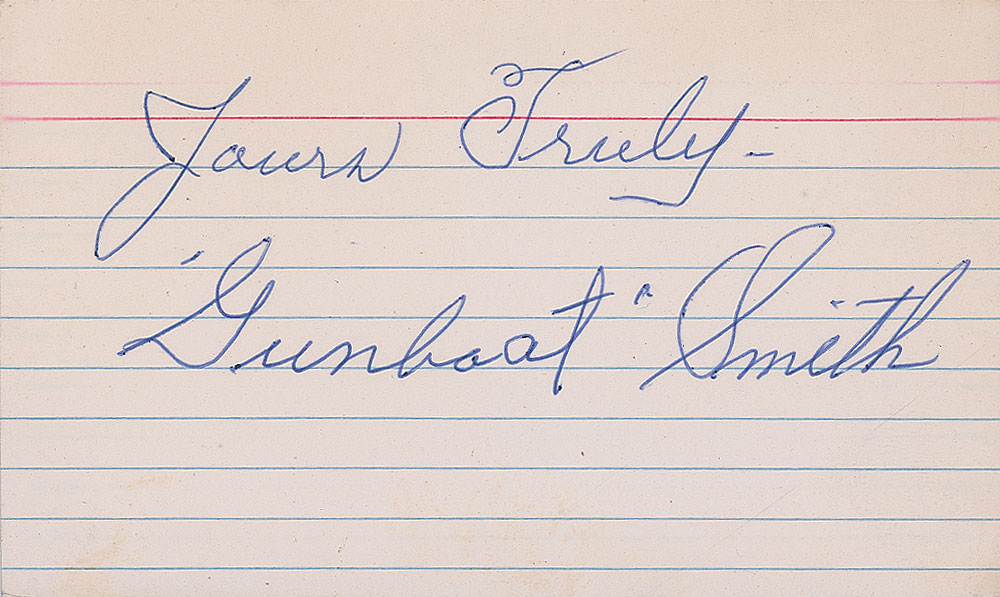 Yours Truly -
"Gunboat" Smith